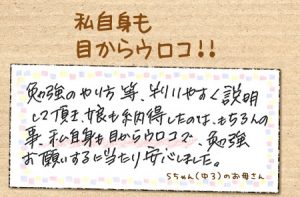 私自身も
目からウロコ!!
勉強のやり方等、判りやすく説明
して頂き、娘も納得したのは、もちろんの
事、私自身も目からウロコで、勉強
お願いするに当たり安心しました。
Sちゃん(中3)のお母さん